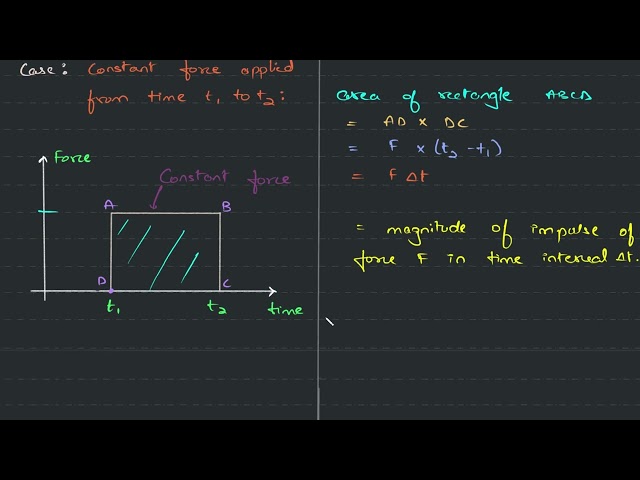 Case: Constant force applied
from time t₁ to t₂:
Force
Constant force
A
B
D
C
t₁
t₂
time
area of rectangle ABCD
= AD × DC
= F × (t₂ - t₁)
= F Δt
= magnitude of impulse of
force F in time interval Δt.